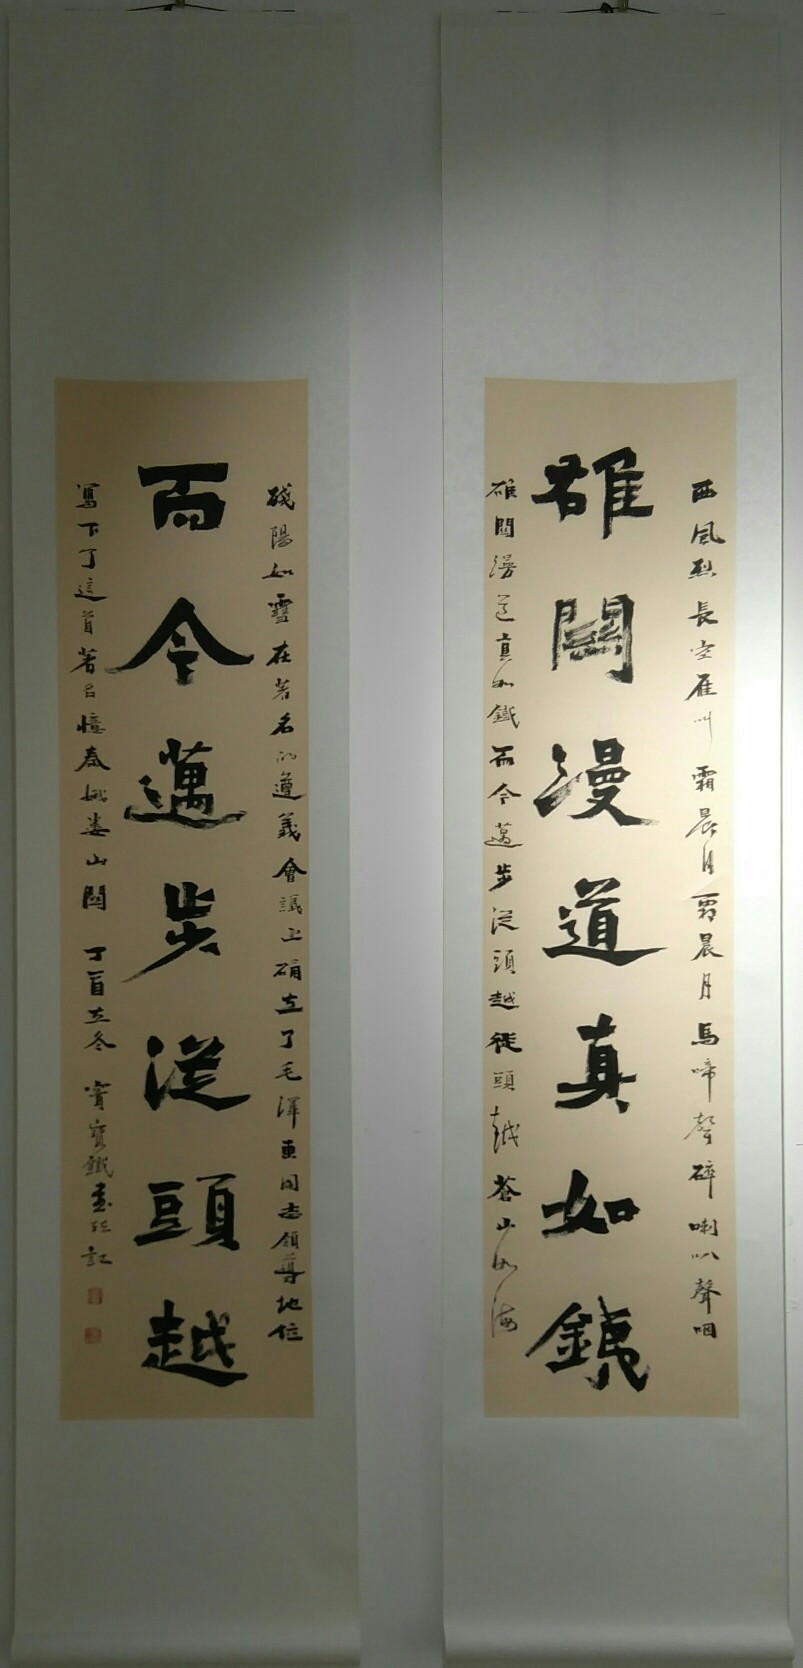 西風烈長空雁叫霜晨月霜晨月馬啼聲碎喇叭聲咽
雄關漫道真如鐵
雄關漫道真如鐵而今邁步從頭越從頭越蒼山如海
殘陽如雪在著名的遵義會議上確立了毛澤東同志領導地位
而今邁步從頭越
寫下了這首著名憶秦娥婁山關 丁酉立冬